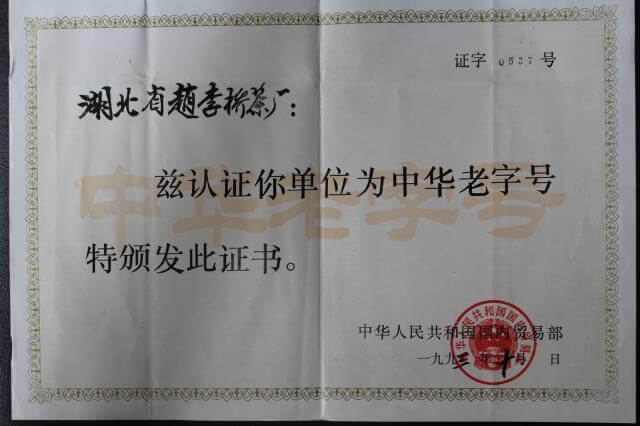 证字 0527 号
湖北省赵李桥茶厂：
中华老字号
兹认证你单位为中华老字号
特颁发此证书。
中华人民共和国国内贸易部
一九九三年十月 日
中华人民共和国国内贸易部